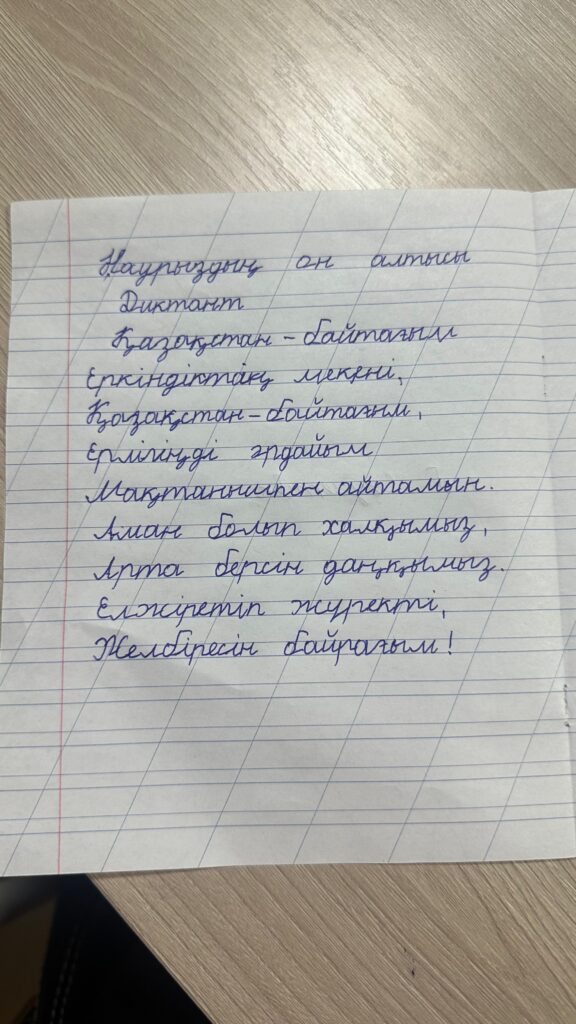 Наурыздың он алтысы
Диктант
Қазақстан – байтағым
Еркіндіктің мекені,
Қазақстан – байтағым,
Ерлігіңді әрдайым
Мақтанышпен айтамын.
Аман болып халқымыз,
Арта берсін даңқымыз.
Елжіретіп жүректі,
Желбіресін байрағым!